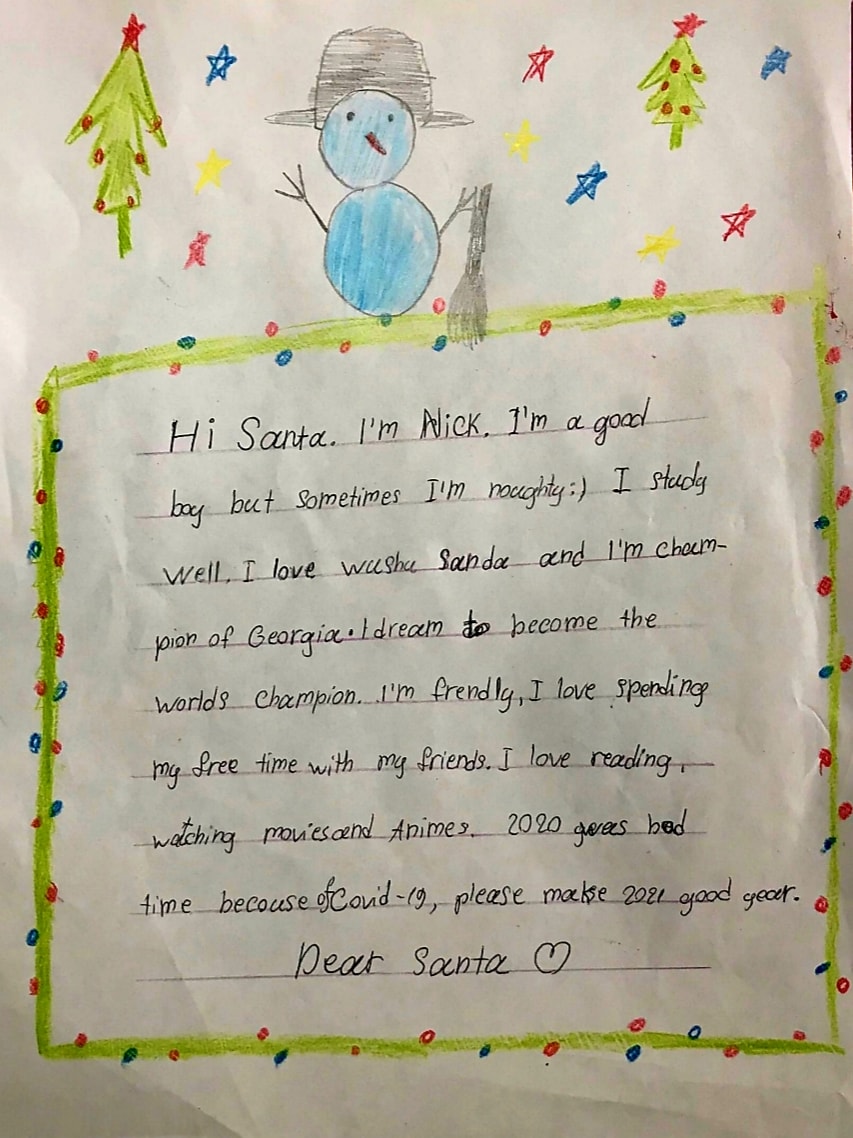 Hi Santa. I'm Nick. I'm a good
boy but sometimes I'm noughty:) I study
well. I love wushu Sanda and I'm cham-
pion of Georgia. I dream to become the
worlds champion. I'm frendly, I love spending
my free time with my friends. I love reading,
watching movies and Animes. 2020 bad
time becouse of Covid-19, please make 2021 good year.
Dear Santa ♡